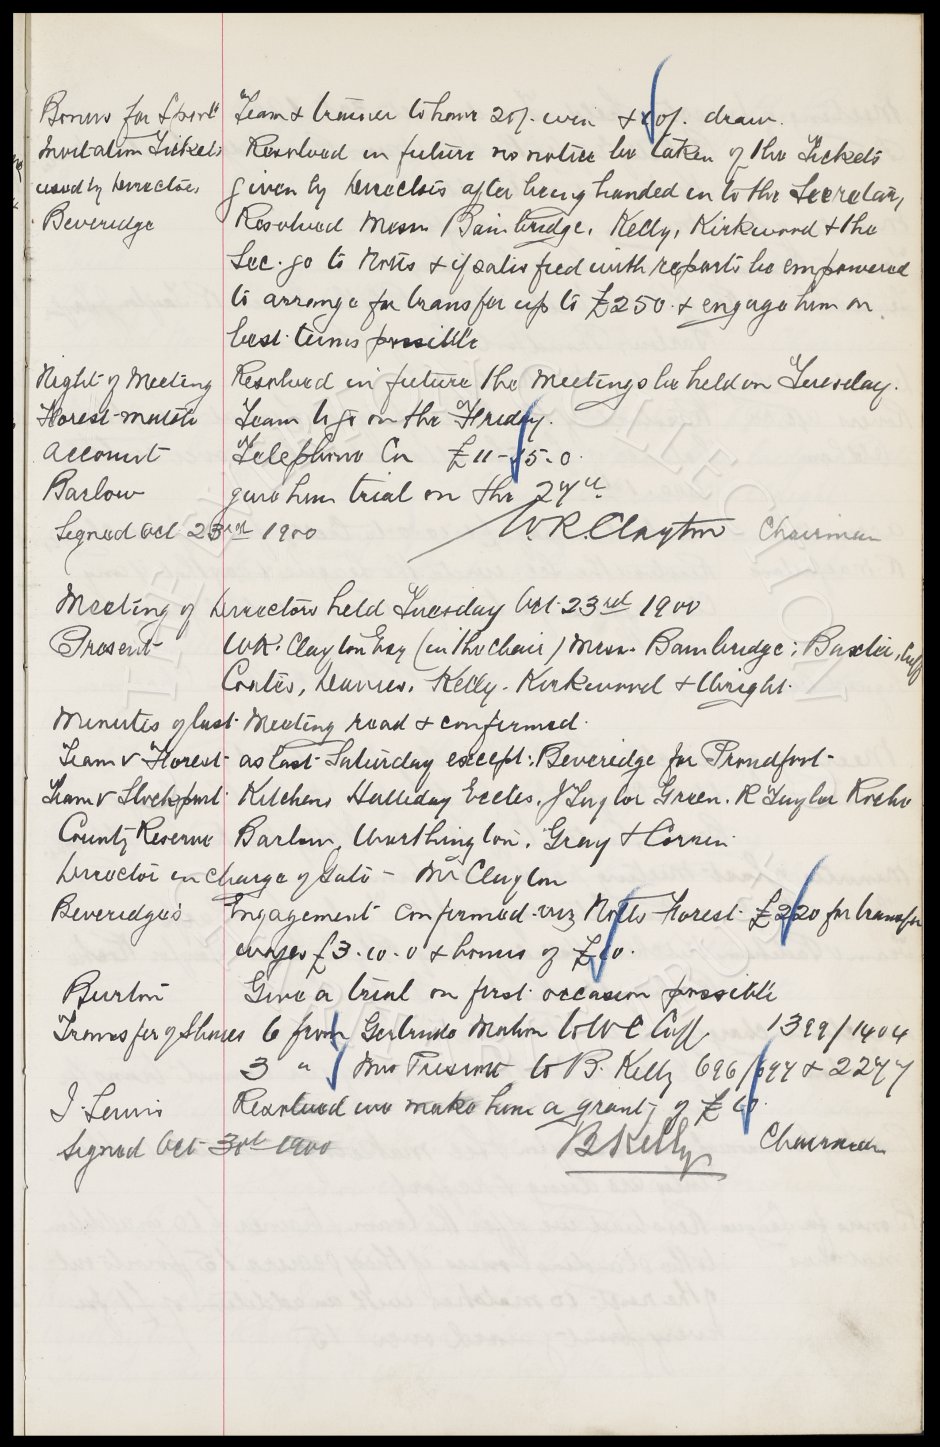 Bonus for Sport Team & trainer to have 20/- win & 10/- draw.
Invitation Tickets Resolved in future no notice be taken of the Tickets
used by Directors given by Directors after being handed in to the Secretary
Beveridge Resolved Messrs Bainbridge, Kelly, Kirkwood & the
Sec. go to Notts & if satisfied with reports be empowered
to arrange for transfer up to £250 & engage him on
best terms possible
Night of Meeting Resolved in future the Meetings be held on Tuesday.
Forest match Team to go on the Friday.
Account Telephone Co £11-15-0
Barlow give him trial on the 27th
Signed Oct 23rd 1900 W.R. Clayton Chairman
Meeting of Directors held Tuesday Oct 23rd 1900
Present W.R. Clayton Esq (in the chair) Messrs Bainbridge, Baxter, Cuff
Coates, Davies, Kelly, Kirkwood & Wright.
Minutes of last Meeting read & confirmed.
Team v Forest as last Saturday except: Beveridge for Proudfoot
Team v Stockport Kitchen Halliday Eccles, J Taylor Green, R Taylor Roche
County Reserve Barlow, Worthington, Gray & Corrin
Director in charge of Gate - Mr Clayton
Beveridge's Engagement confirmed viz Notts Forest £220 for transfer
wages £3.10.0 & bonus of £10.
Burton Give a trial on first occasion possible
Transfer of Shares 6 from Gertrude Mahon to W C Cuff 1399/1404
3 " Mrs Prescott to B. Kelly 696/697 & 2247
J. Lewis Resolved we make him a grant of £10.
Signed Oct 30th 1900 B Kelly Chairman